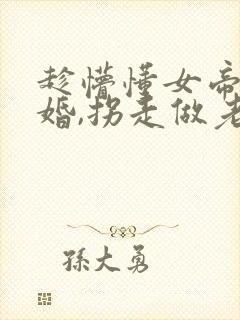 趁懵懂女帝
婚,拐走做老
孫大勇